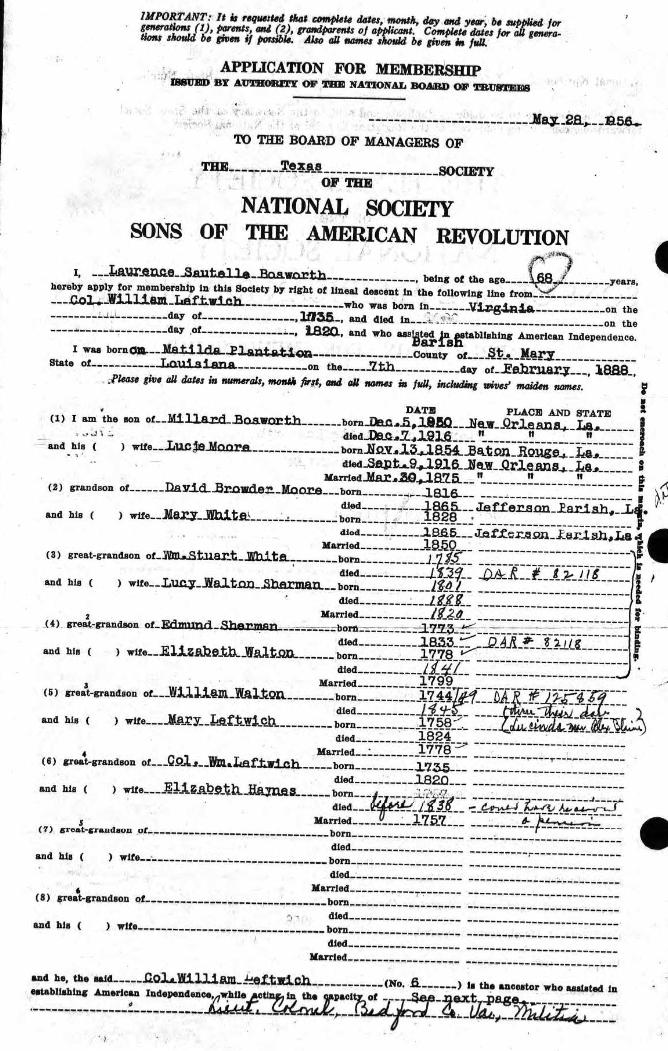 IMPORTANT: It is requested that complete dates, month, day and year, be supplied for
generations (1), parents, and (2), grandparents of applicant. Complete dates for all genera-
tions should be given if possible. Also all names should be given in full.
APPLICATION FOR MEMBERSHIP
ISSUED BY AUTHORITY OF THE NATIONAL BOARD OF TRUSTEES
May 28, 1956.
TO THE BOARD OF MANAGERS OF
THE Texas SOCIETY
OF THE
NATIONAL SOCIETY
SONS OF THE AMERICAN REVOLUTION
I, Laurence Sautelle Bosworth, being of the age 68 years,
hereby apply for membership in this Society by right of lineal descent in the following line from
Col. William Leftwich who was born in Virginia on the
day of, 1735, and died in on the
day of, 1820, and who assisted in establishing American Independence.
I was born on Matilda Plantation Parish County of St. Mary
State of Louisiana on the 7th day of February, 1888.
Please give all dates in numerals, month first, and all names in full, including wives' maiden names.
DATE PLACE AND STATE
(1) I am the son of Millard Bosworth born Dec.5,1850 New Orleans, La.
died Dec.7,1916 " " "
and his ( ) wife Lucie Moore born Nov.13,1854 Baton Rouge, La.
died Sept.9,1916 New Orleans, La.
Married Mar.30,1875 " " "
(2) grandson of David Browder Moore born 1816
died 1865 Jefferson Parish, La.
and his ( ) wife Mary White born 1828
died 1865 Jefferson Parish, La
Married 1850
(3) great-grandson of Wm. Stuart White born 1785
died 1839 DAR # 82118
and his ( ) wife Lucy Walton Sherman born 1801
died 1888
Married 1820
(4) great 2 -grandson of Edmund Sherman born 1773
died 1833 DAR # 82118
and his ( ) wife Elizabeth Walton born 1778
died 1841
Married 1799
(5) great 3 -grandson of William Walton born 1744/49 DAR # 125859
died 1845
and his ( ) wife Mary Leftwich born 1758
died 1824
Married 1778
(6) great 4 -grandson of Col. Wm. Leftwich born 1735
died 1820
and his ( ) wife Elizabeth Haynes born
died before 1838 - could have received
Married 1757 a pension
(7) great 5 -grandson of born
died
and his ( ) wife born
died
Married
(8) great 6 -grandson of born
died
and his ( ) wife born
died
Married
Do not encroach on this margin, which is needed for binding.
and he, the said Col. William Leftwich (No. 6 ) is the ancestor who assisted in
establishing American Independence, while acting in the capacity of See next page
Lieut. Colonel, Bedford Co. Va., Militia